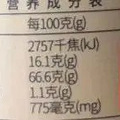 营养成分表
每100克(g)
2757千焦(kJ)
16.1克(g)
66.6克(g)
1.1克(g)
775毫克(mg)